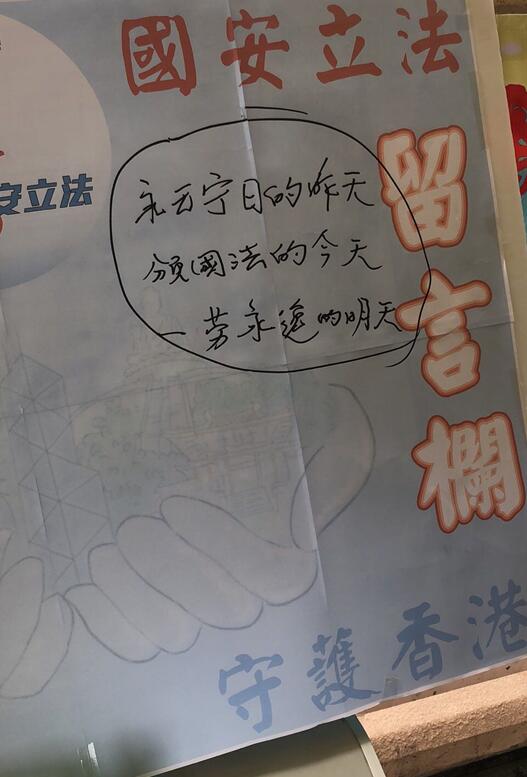 國安立法
安立法
留言欄
永无宁日的昨天
頒國法的今天
一劳永逸的明天
守護香港